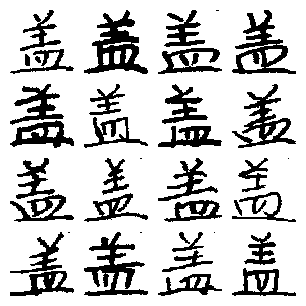 盖盖盖盖
盖盖盖盖
盖盖盖盖
盖盖盖盖